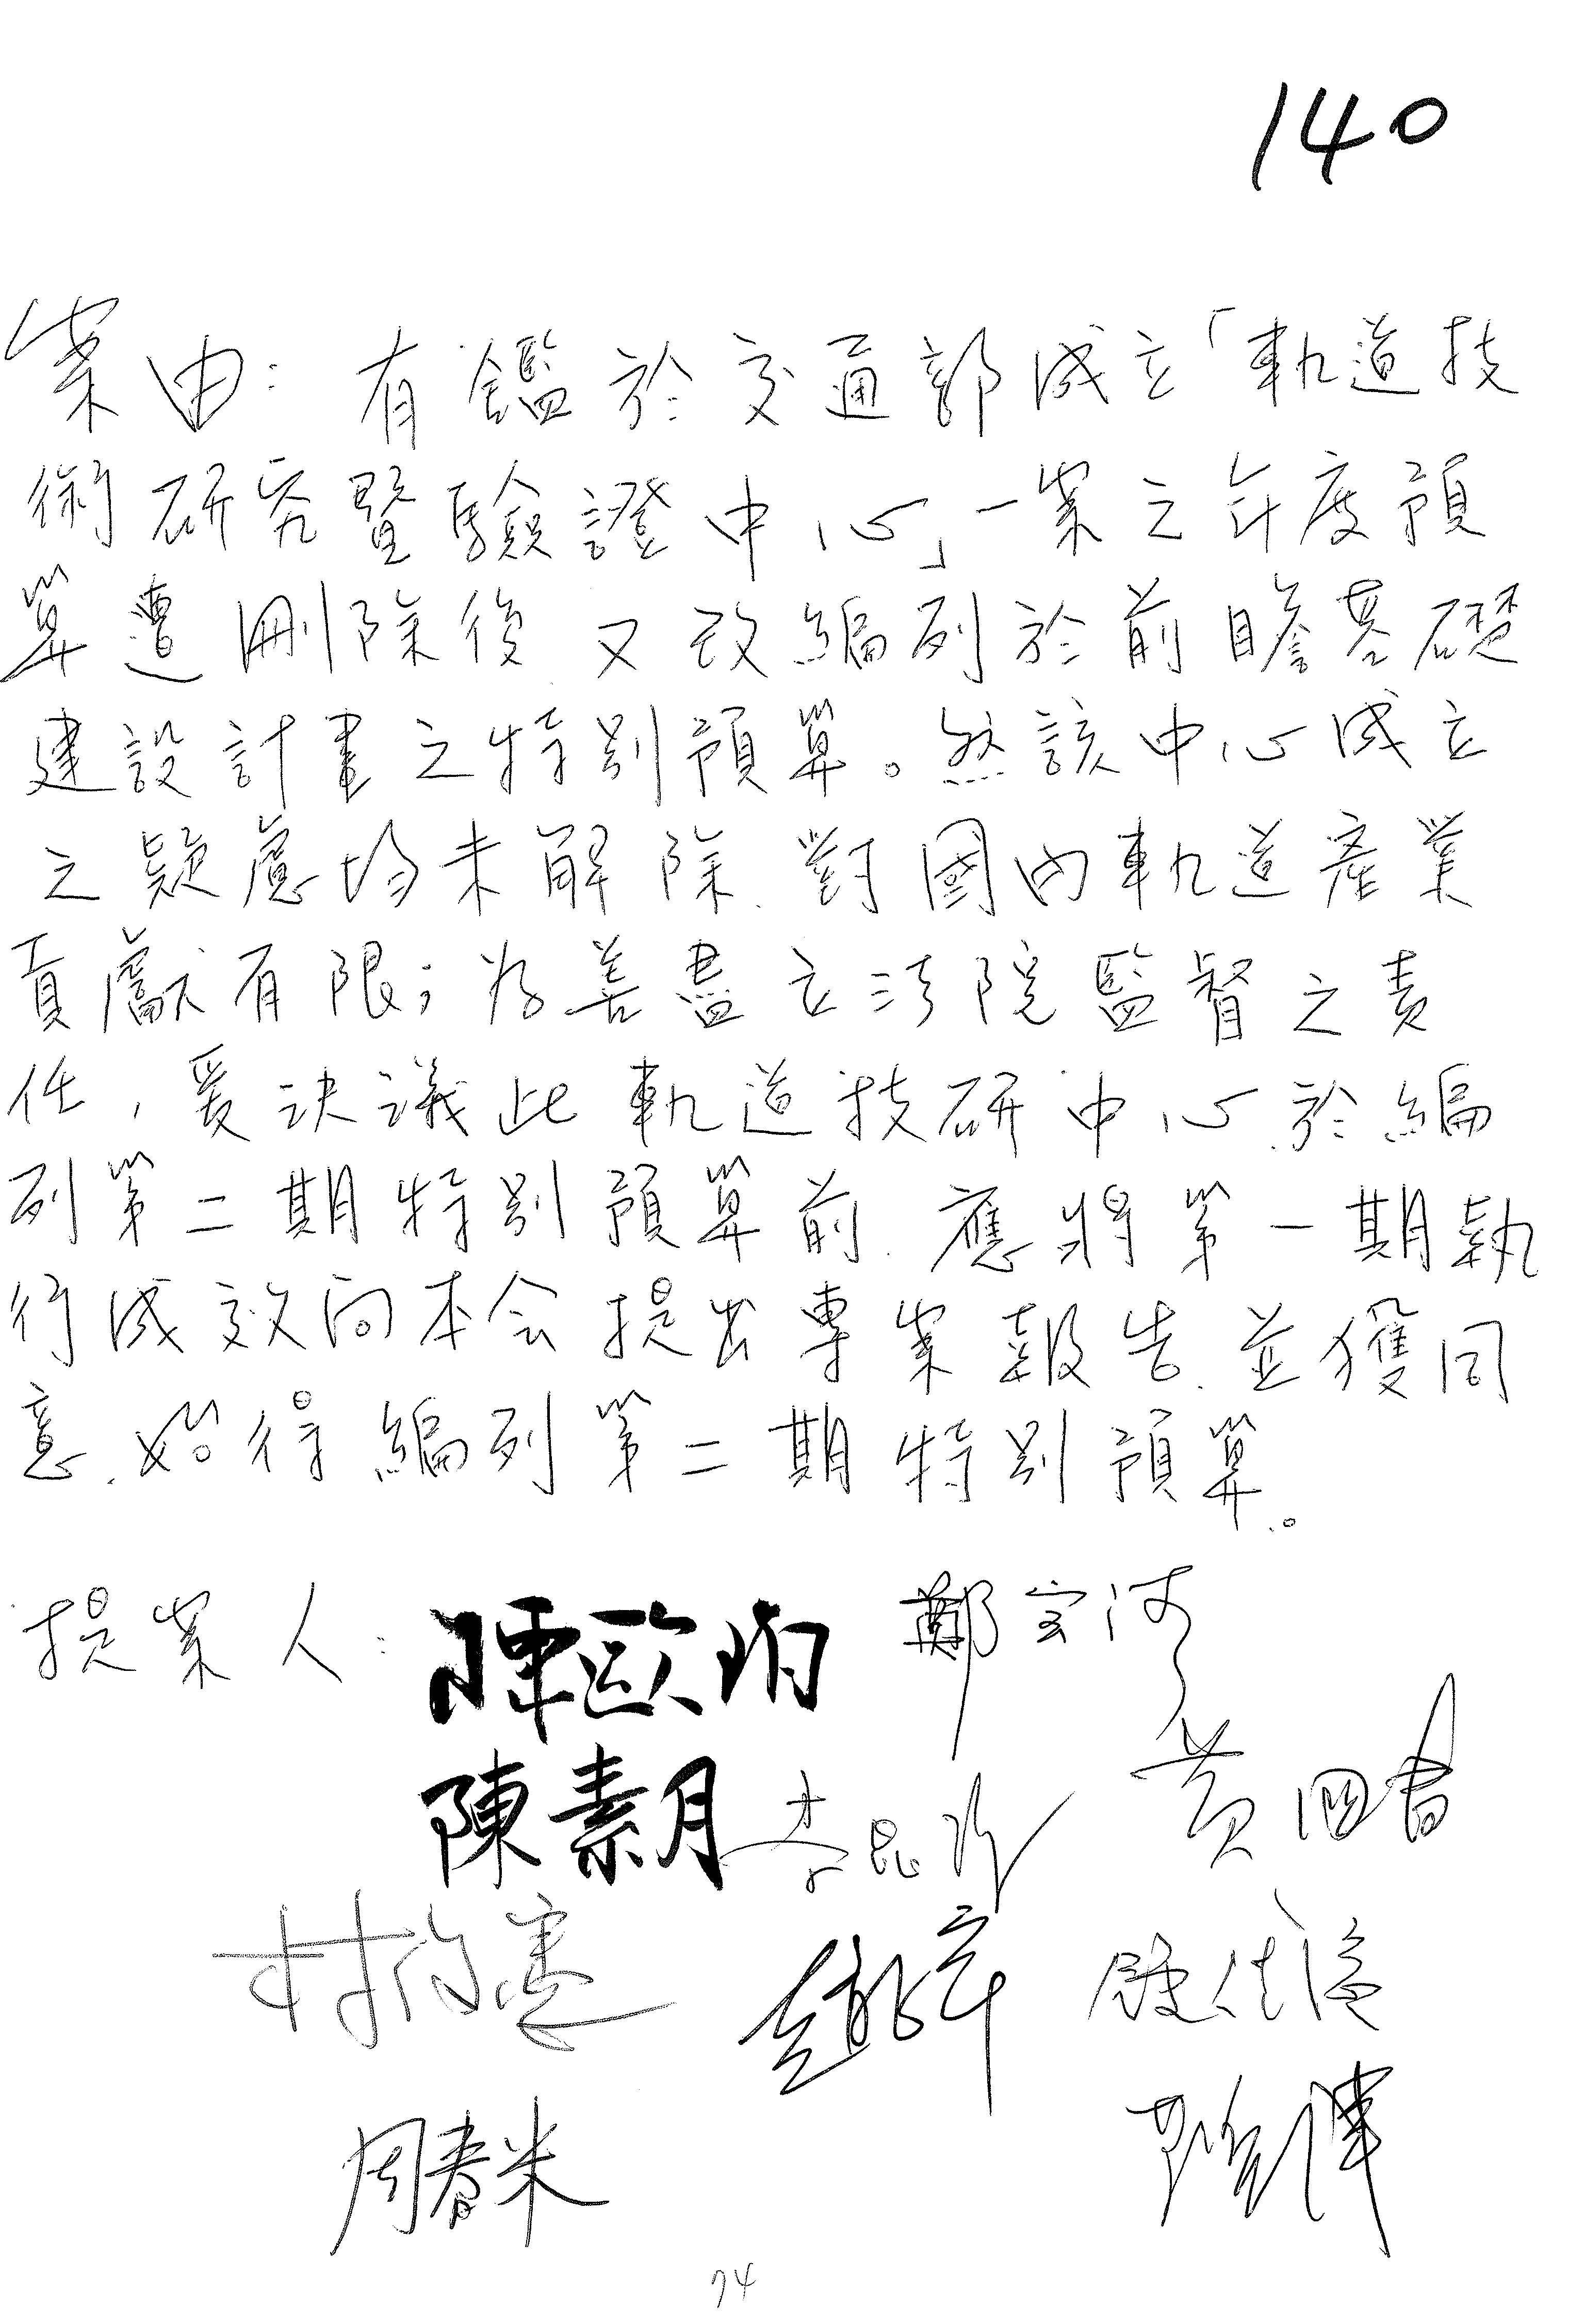 140
案由：有鑑於交通部成立「軌道技
術研究暨驗證中心」一案之年度預
算遭刪除後又改編列於前瞻基礎
建設計畫之特別預算。然該中心成立
之疑慮均未解除、對國內軌道產業
貢獻有限；為善盡立法院監督之責
任，爰決議此軌道技研中心於編
列第二期特別預算前、應將第一期執
行成效向本会提出專案報告、並獲同
意、始得編列第二期特別預算。
提案人：陳歐珀 鄭宝清
陳素月 李昆澤 黃国書
林俊憲
周春米
74